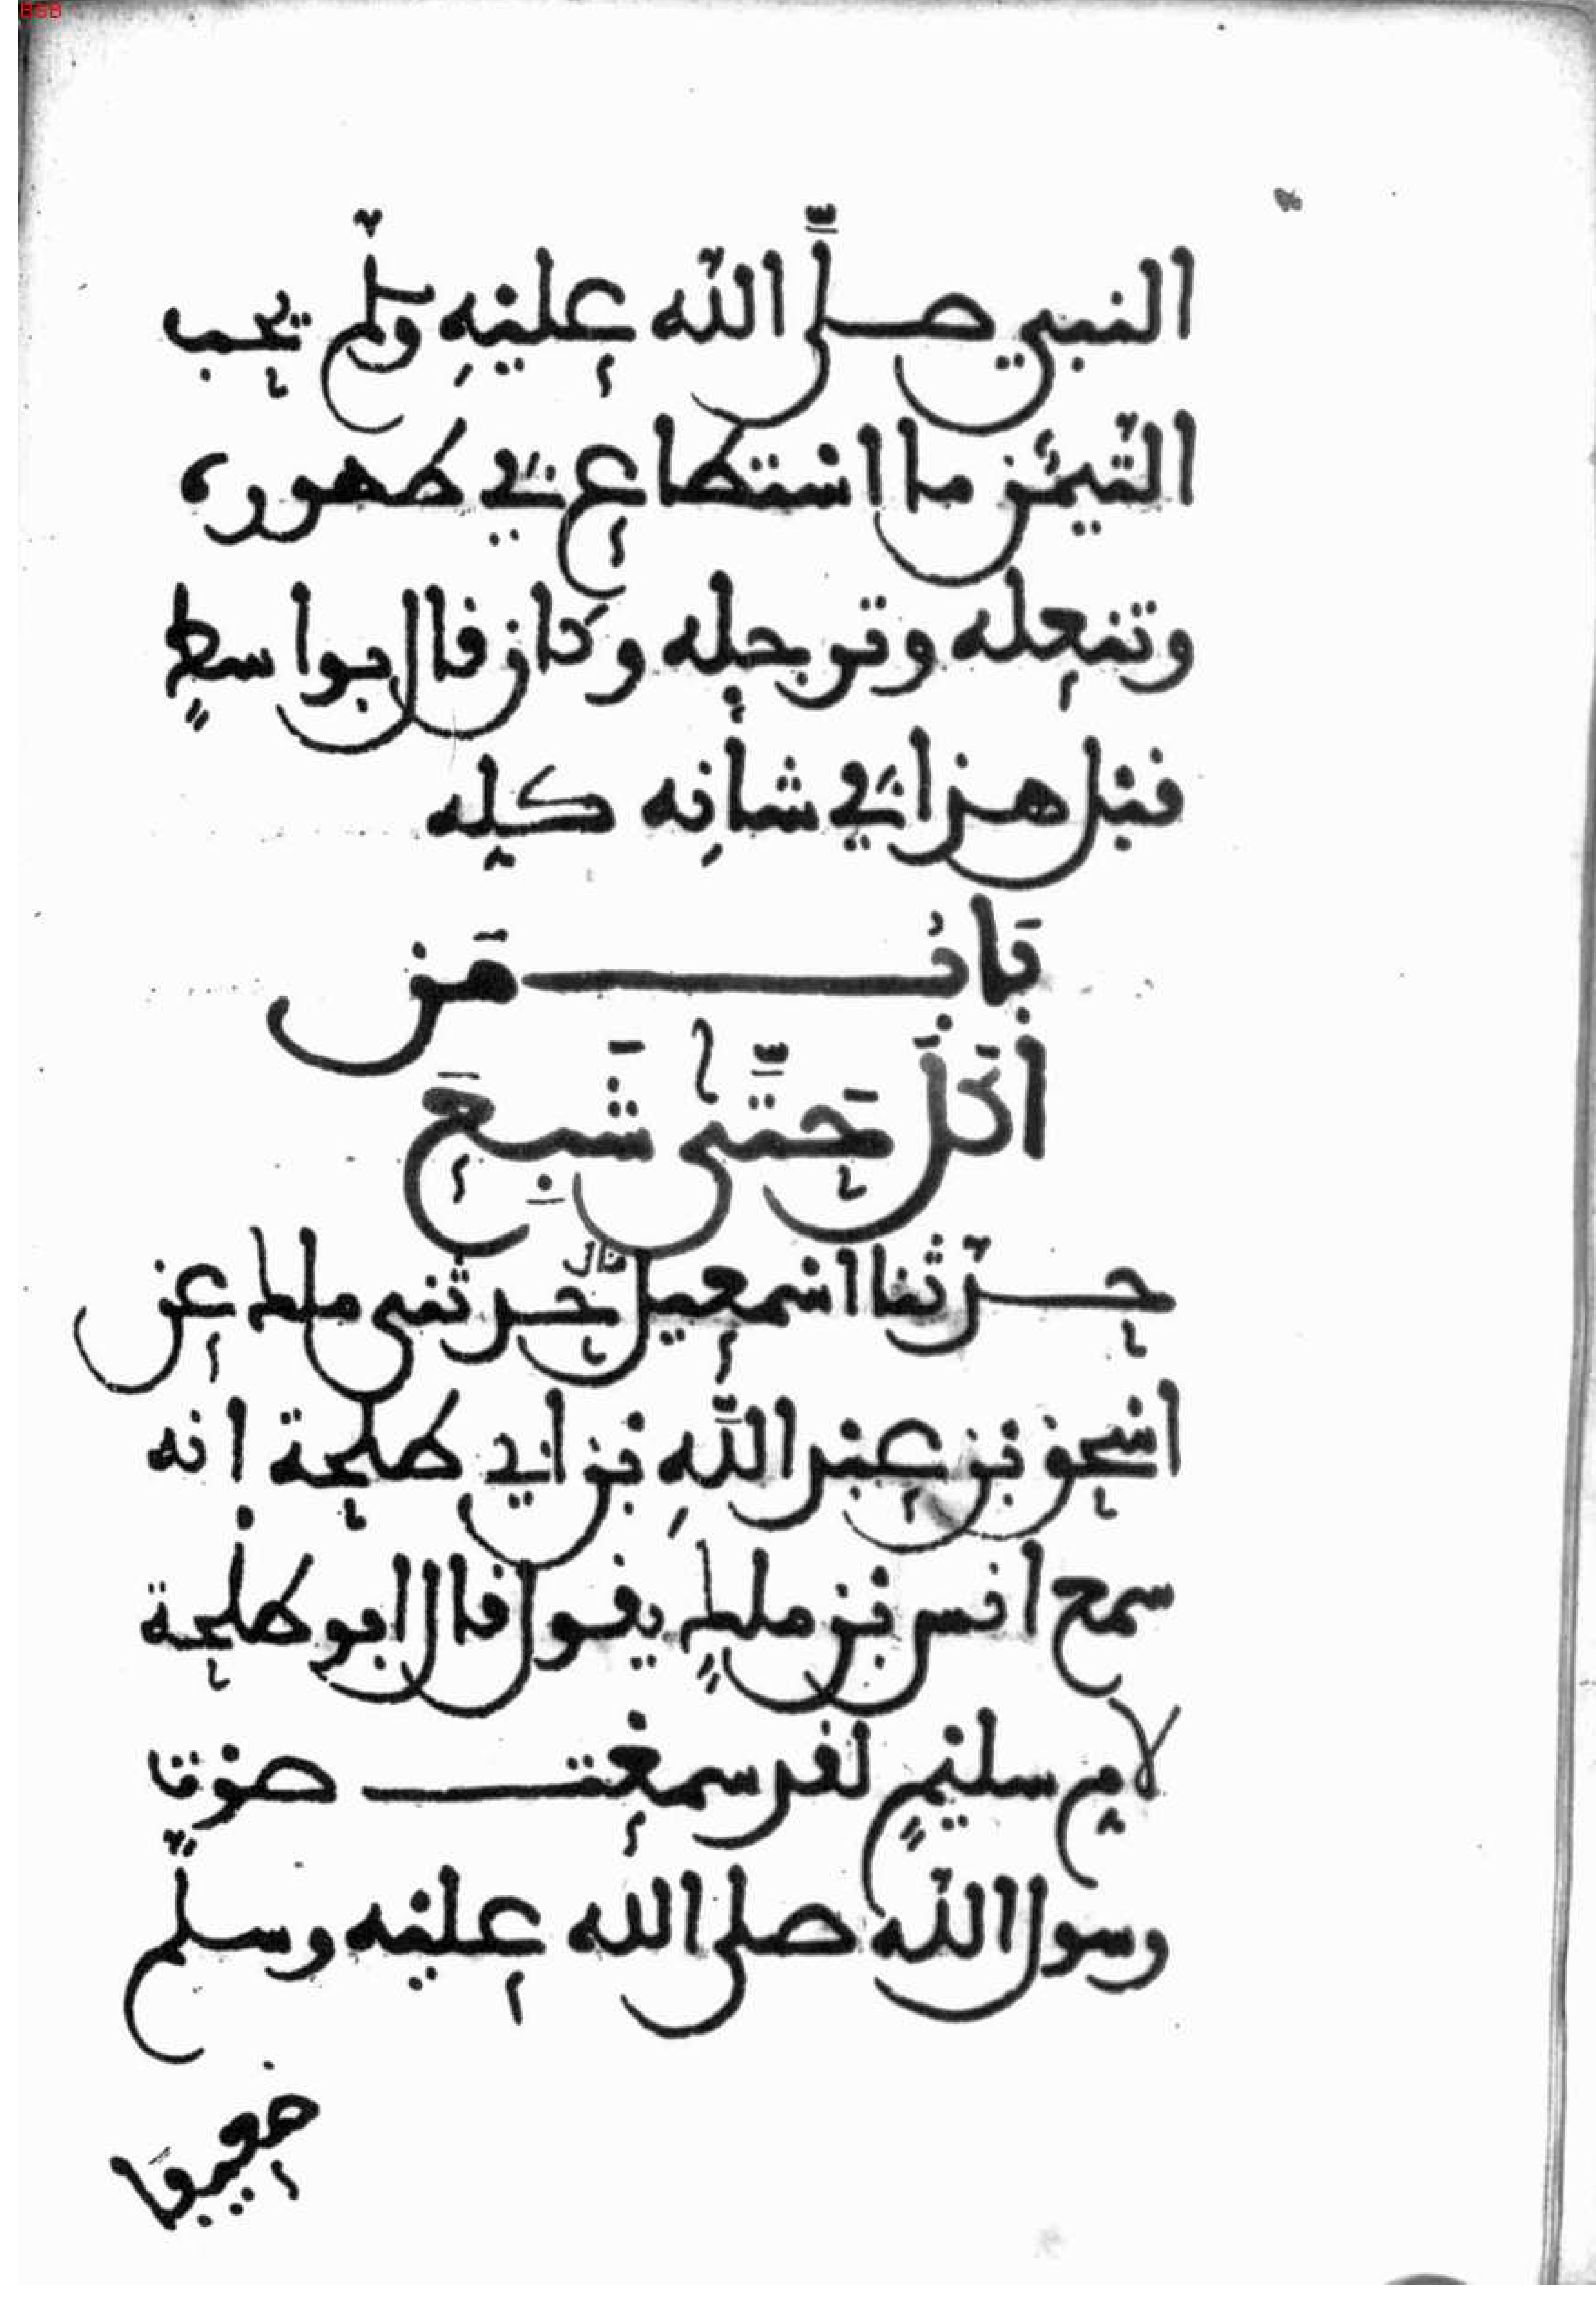 858
النبي صلَّى اللّه عليْهِ وسلّم يحب
التّيمُّن ما اسْتطاع في طهوره
وتنعله وترجله وكان قال بواسطٍ
قبْل هذا في شأنِه كله
بَابُ مَنْ
أَكَلَ حَتَّى شَبِعَ
حدّثنا اسْمعيل قال حدثنى ملك عن
اسْحق بْن عبْد اللَّهِ بْن ابي طلحة انه
سمع انس بْن ملكٍ يقول قال ابو طلْحة
لام سليْمٍ لقد سمعْت صوْتا
رسول اللّه صلى الله عليْه وسلّم
ضعيفا